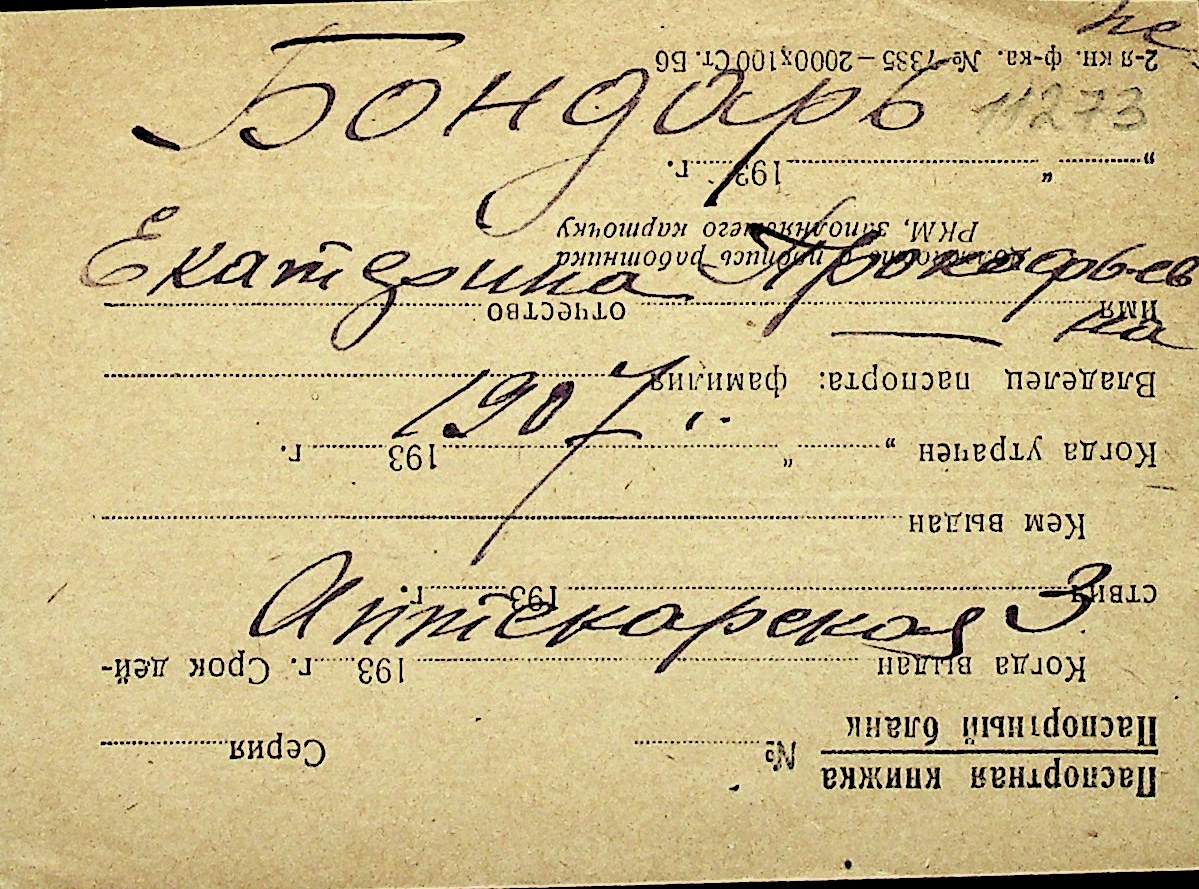 не
Бондарь
11273
Екатерина Прокофьев
на
1907 г.
Аптекарская 3
Паспортная книжка
Паспортный бланк
№ Серия
Когда выдан 193 г. Срок дей-
ствия 193 г.
Кем выдан
Когда утрачен „ “ 193 г.
Владелец паспорта: фамилия
имя отчество
Должность и подпись работника
РКМ, заполнявшего карточку
„ “ 193 г.
2-я кн. ф-ка. № 7335—2000х100 Ст. Б6